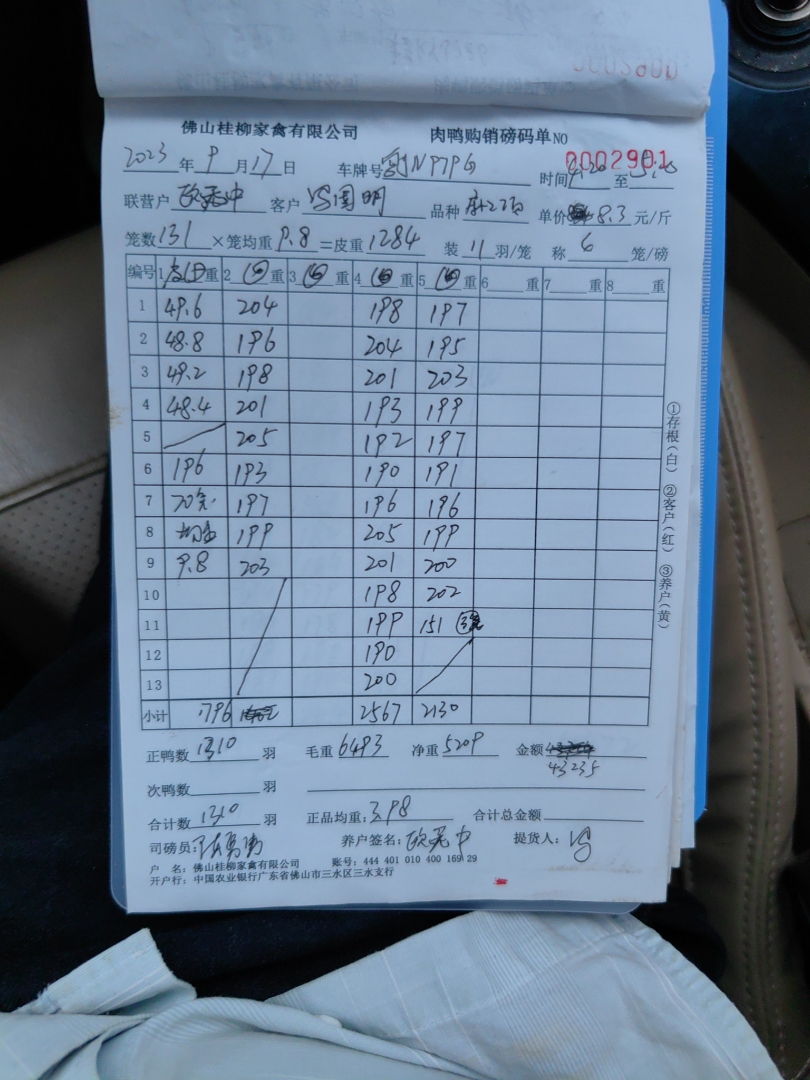 0002900
佛山桂柳家禽有限公司 肉鸭购销磅码单NO 0002901
2023年9月17日 车牌号 N979G 时间 至
联营户 中 客户 冯国明 品种 单价 8.3 元/斤
笼数 131 ×笼均重 9.8 =皮重 1284 装 11 羽/笼 称 6 笼/磅
编号 1 重 2 重 3 重 4 重 5 重 6 重 7 重 8 重
1 49.6 204 198 197
2 48.8 196 204 195
3 49.2 198 201 203
4 48.4 201 193 199
5 205 192 197
6 196 193 190 191
7 20笼 197 196 196
8 均重 199 205 199
9 9.8 203 201 200
10 198 202
11 199 151
12 190
13 200
小计 1796 2567 2130
正鸭数 1310 羽 毛重 6493 净重 5209 金额
43235
次鸭数 羽
合计数 1310 羽 正品均重: 3.98 合计总金额
司磅员: 养户签名: 中 提货人: 冯
户 名: 佛山桂柳家禽有限公司 账号: 444 401 010 400 169 29
开户行: 中国农业银行广东省佛山市三水区三水支行
①存根(白) ②客户(红) ③养户(黄)